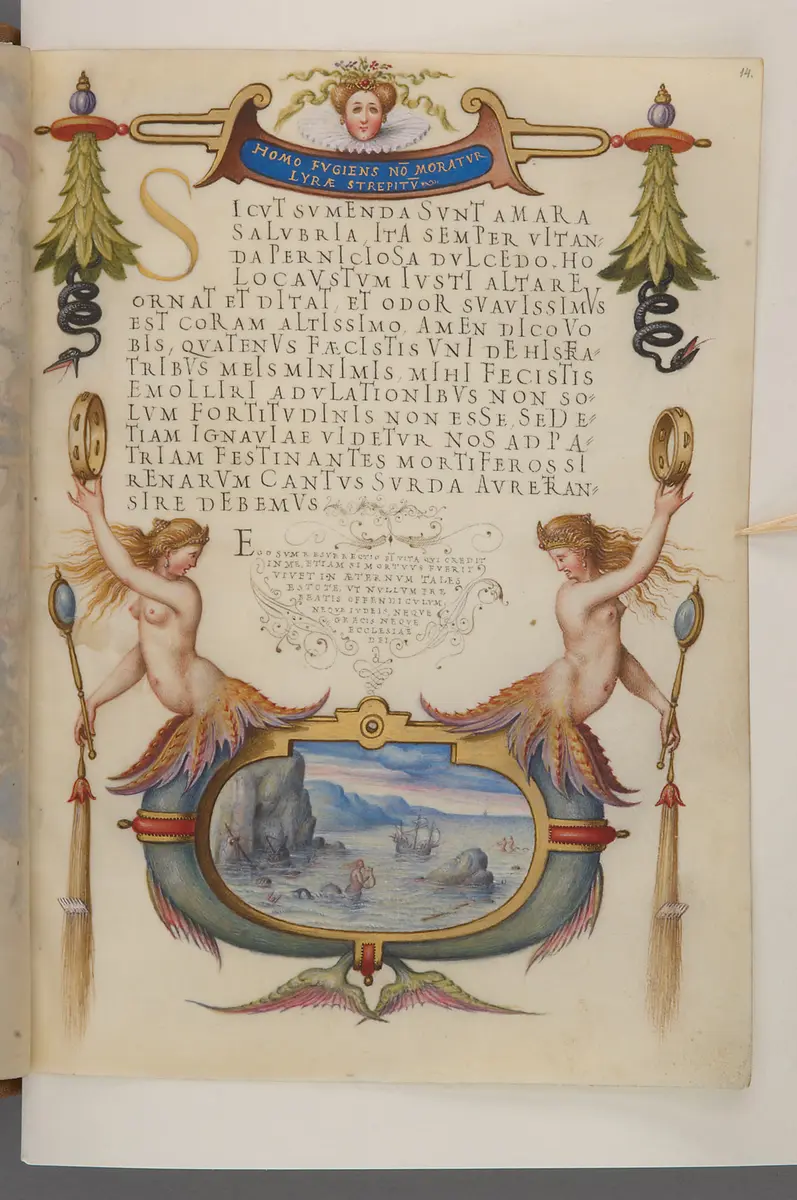 14.
HOMO FVGIENS NŌ MORATVR
LYRÆ STREPITV̄
SICVT SVMENDA SVNT AMARA
SALVBRIA, ITA SEMPER VITAN=
DA PERNICIOSA DVLCEDO. HO
LOCAVSTVM IVSTI ALTARE
ORNAT ET DITAT, ET ODOR SVAVISSIMVS
EST CORAM ALTISSIMO. AMEN DICO VO
BIS, QVATENVS FÆCISTIS VNI DE HIS FRA=
TRIBVS MEIS MINIMIS, MIHI FECISTIS
EMOLLIRI ADVLATIONIBVS NON SO=
LVM FORTITVDINIS NON ESSE, SED E=
TIAM IGNAVIAE VIDETVR NOS AD PA=
TRIAM FESTINANTES MORTIFEROS SI
RENARVM CANTVS SVRDA AVRE TRAN=
SIRE DEBEMVS
EGO SVM RESVRRECTIO ET VITA QVI CREDIT
IN ME, ETIAM SI MORTVVS FVERIT
VIVET IN ÆTERNVM TALES
ESTOTE, VT NVLLVM PRE
BEATIS OFFENDICVLVM,
NEQVE IVDEIS, NEQVE
GRECIS NEQVE
ECCLESIAE
DEI